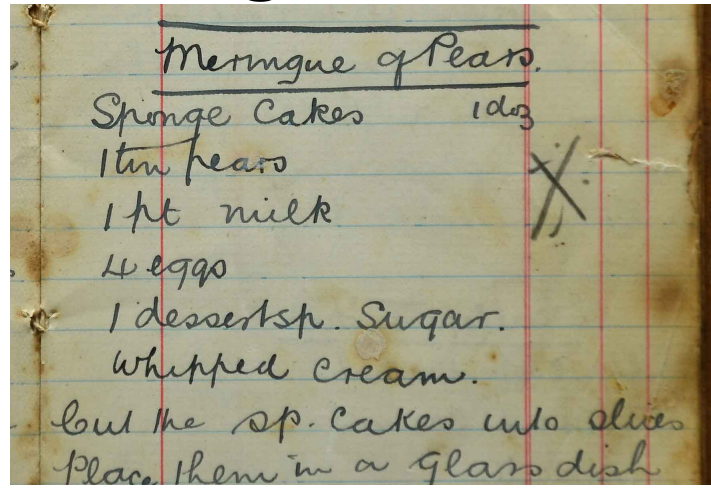 Meringue of Pears.
Sponge Cakes 1 doz
1 tin pears
1 pt milk
4 eggs
1 dessertsp. Sugar.
Whipped Cream.
Cut the sp. Cakes into slices
Place them in a Glass dish